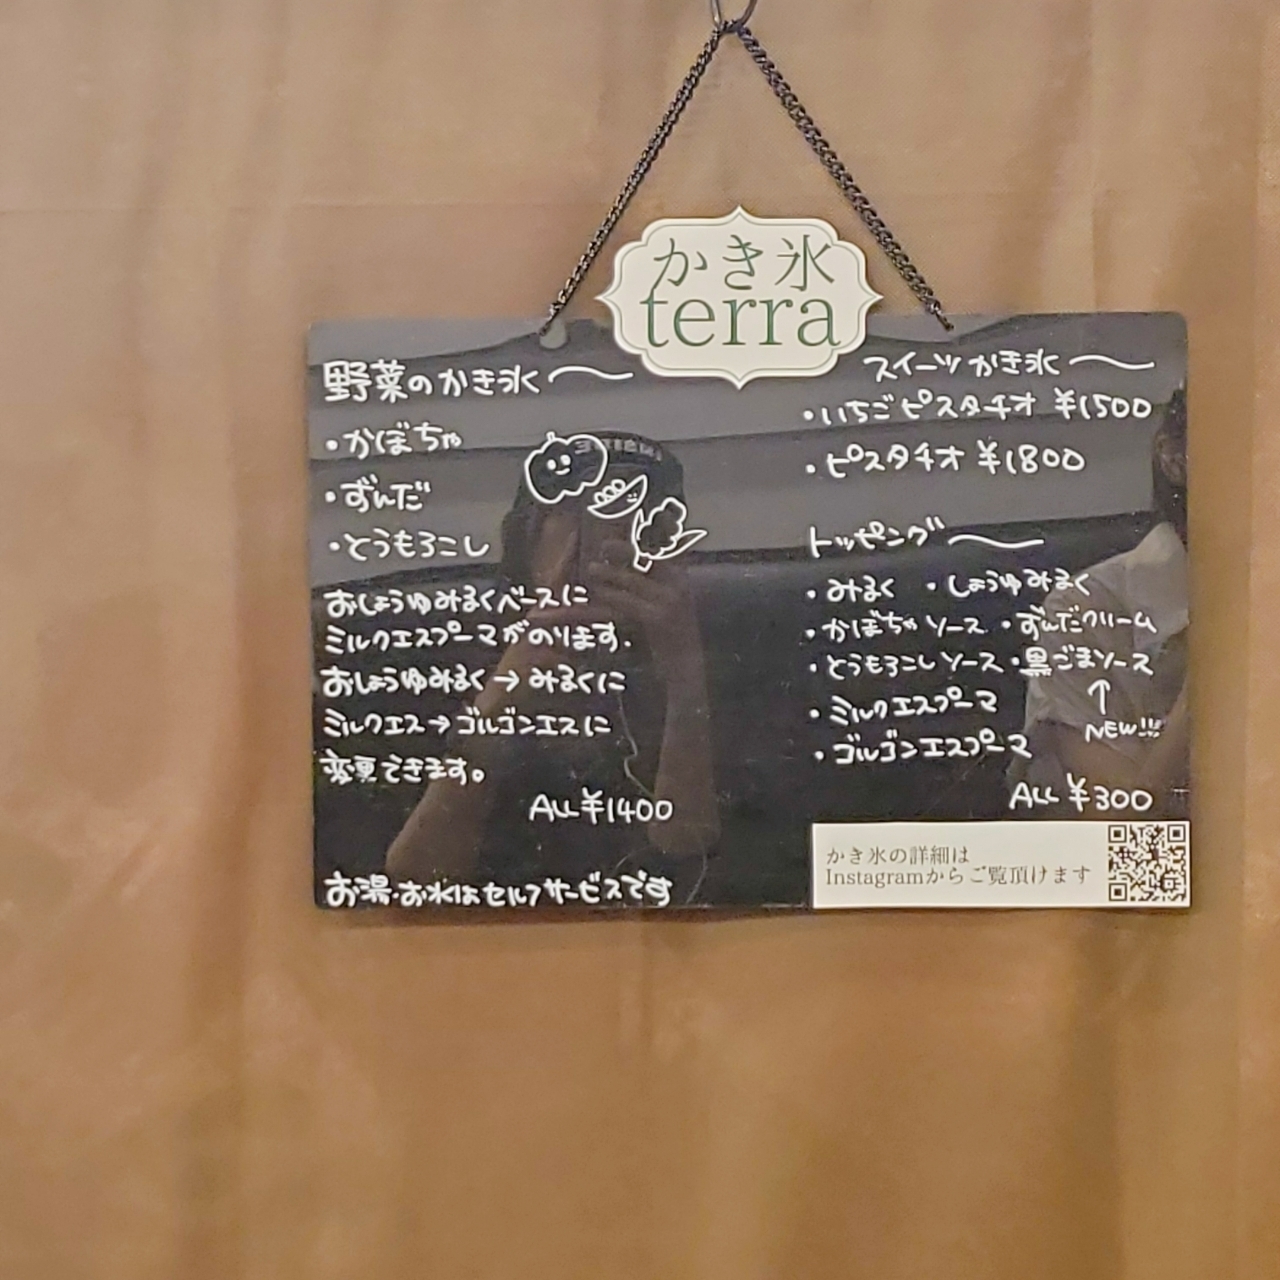 かき氷
terra
野菜のかき氷
・かぼちゃ
・ずんだ
・とうもろこし
おしょうゆみるくベースに
ミルクエスプーマがのります.
おしょうゆみるく→みるくに
ミルクエス→ゴルゴンエスに
変更できます。
ALL ¥1400
お湯・お水はセルフサービスです
スイーツかき氷
・いちごピスタチオ ¥1500
・ピスタチオ ¥1800
トッピング
・みるく ・しょうゆみるく
・かぼちゃソース ・ずんだクリーム
・とうもろこしソース ・黒ごまソース
↑
・ミルクエスプーマ
NEW!!!
・ゴルゴンエスプーマ
ALL ¥300
かき氷の詳細は
Instagramからご覧頂けます